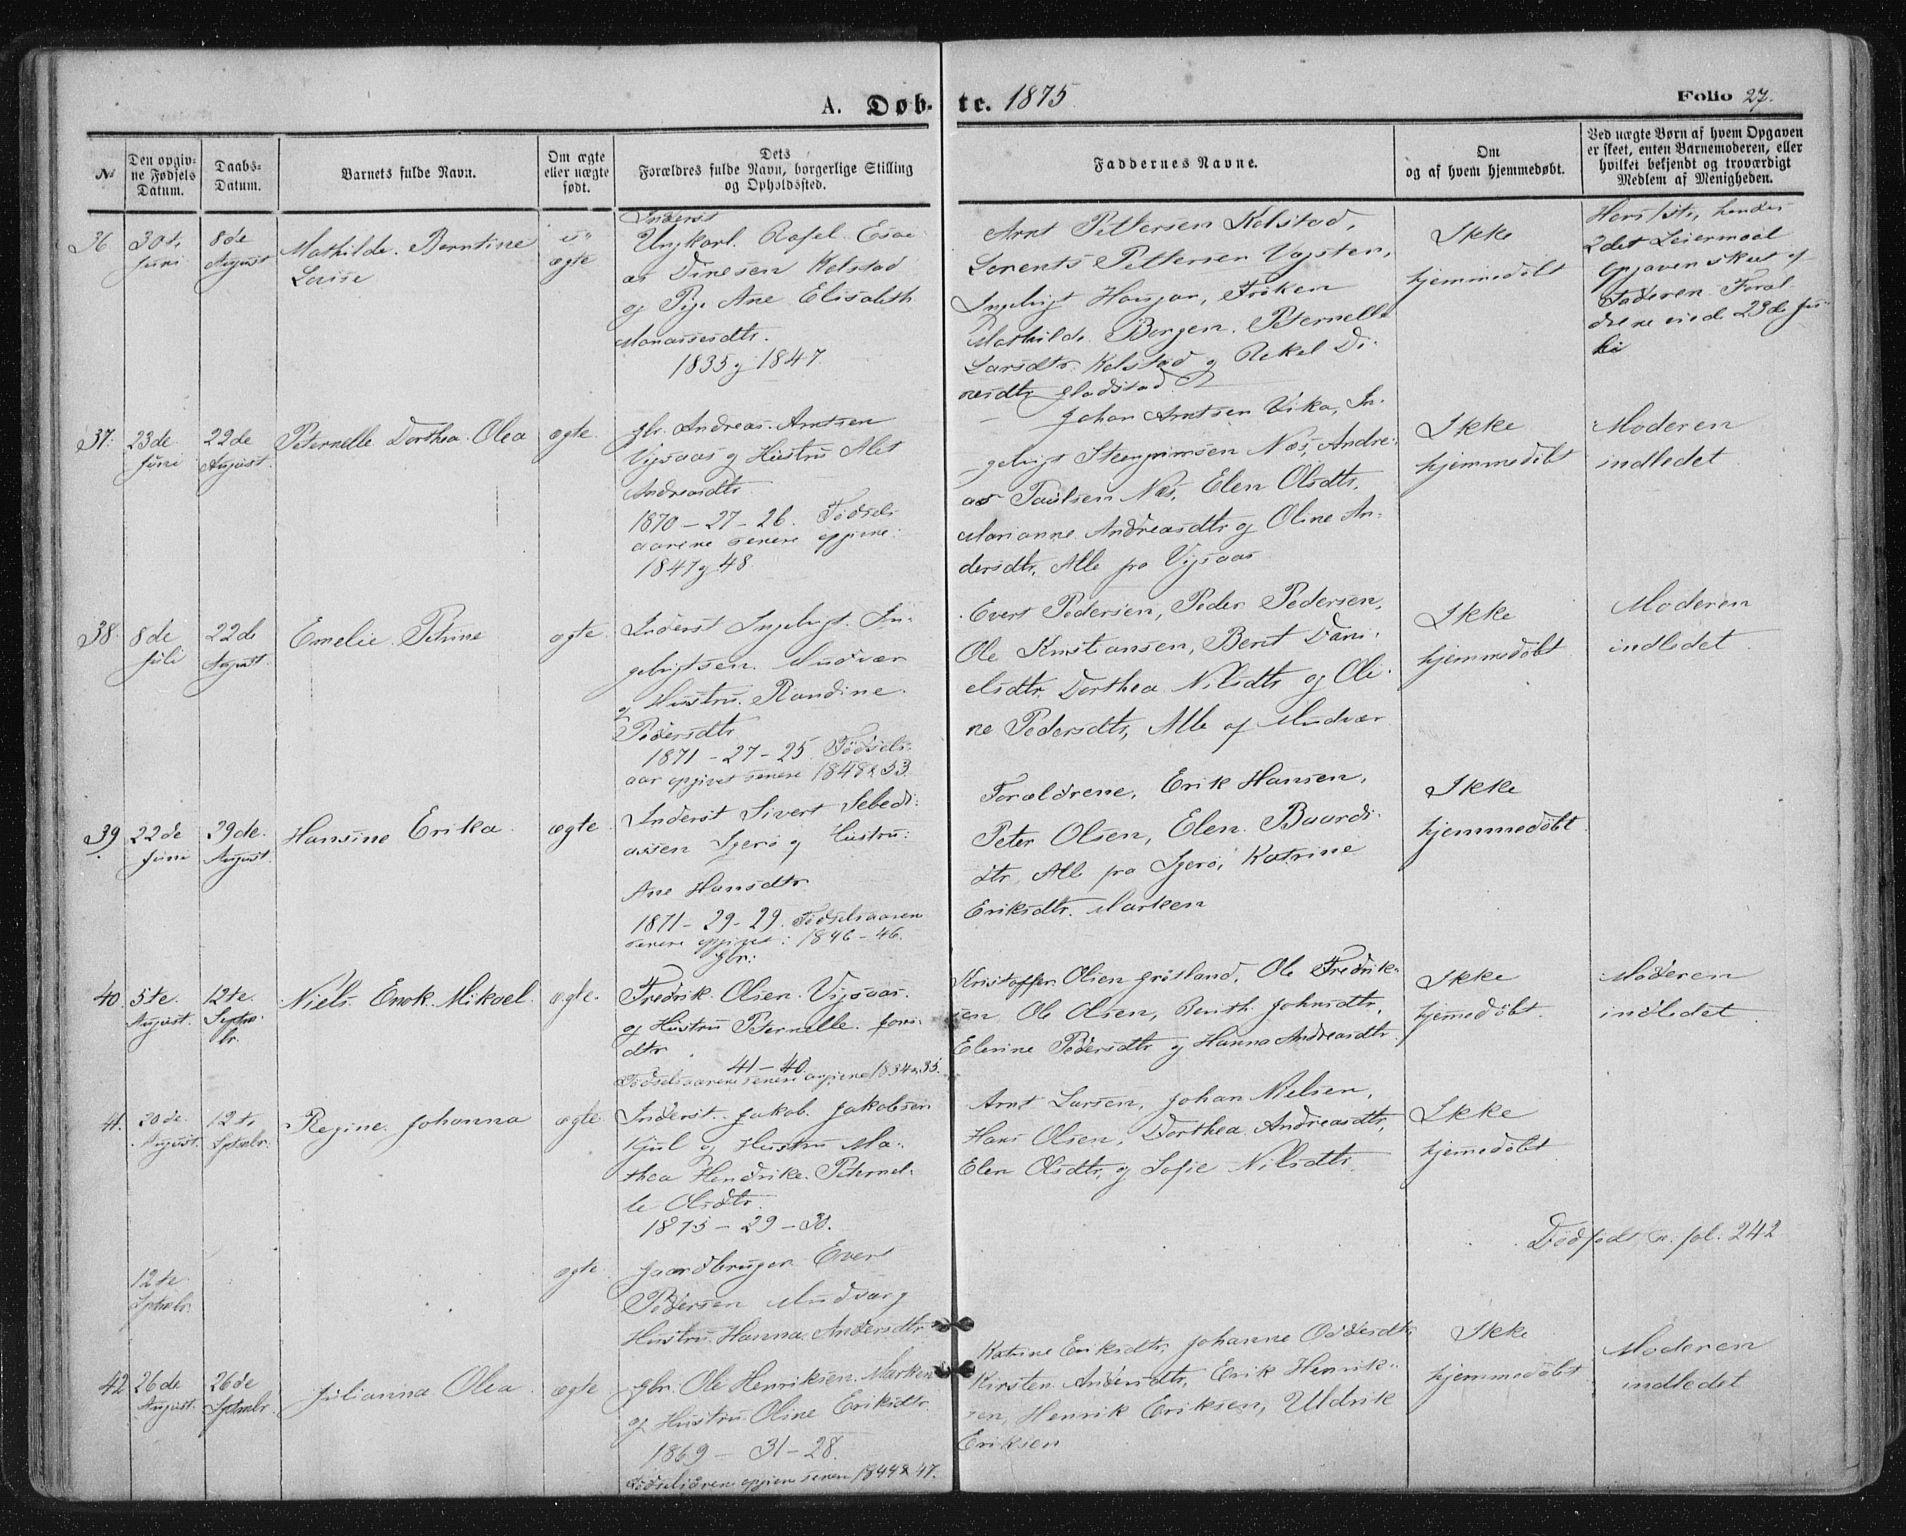 A. Døb- te. 1875
Folio 27.
№
Den opgiv-
ne Fødsels
Datum.
Daabs-
Datum.
Barnets fulde Navn.
Om ægte
eller uægte
født.
Dets
Forældres fulde Navn, borgerlige Stilling
og Opholdssted.
Faddernes Navne.
Om
og af hvem hjemmedøbt.
Ved uægte Børn af hvem Opgaven
er skeet, enten Barnemoderen, eller
hvilket bekjendt og troværdigt
Medlem af Menigheden.
36
30te
Juni
8de
August
Mathilde Berntine
Louise
u-
ægte
Inderst
Ungkarl Rafel Esai-
as Dinesen Kelstad
og Pige Ane Elisabeth
Manassesdtr.
1835 og 1847.
Arnt Pettersen Kelstad,
Lorents Pettersen
Ingebrigt Frøken
Mathilde Borgen, Peternelle
Larsdtr. Kelstad og Rekel Di-
nesdtr Gladstad.
Ikke
hjemmedøbt
Hans 1ste, hendes
2det Leiermaal
Opgaven skeet af
Faderen. Foræl-
drene viede 23de Ju-
li
37.
23de
Juni
22de
August.
Peternelle Dorthea Olea
ægte.
Gbr. Andreas Arntsen
Vigsaas og Hustru Alet
Andreasdtr.
1870 – 27 – 26. Fødsels-
aarene senere opgivne:
1847 og 48
Johan Arntsen Vika, In-
gebrigt Steengrimsen Næs, Andre-
as Paulsen Næs, Elen Olsdtr,
Marianne Andreasdtr og Oline An-
dersdtr, Alle fra Vigsaas
Ikke
hjemmedøbt
Moderen
indledet
38.
8de
Juli
22de
August.
Emelie Petrine
ægte.
Inderst Ingebrigt In-
gebrigtsen Mudvær
og Hustru Randine
Pedersdtr
1871 – 27 – 25 Fødsels-
aar opgivet senere 1848 & 53.
Evert Pedersen, Peder Pedersen,
Ole Kristiansen, Berit Dani-
elsdtr. Dorthea Nilsdtr og Oli-
ne Pedersdtr, Alle af Mudvær
Ikke
hjemmedøbt
Moderen
indledet
39
22de
Juni
29de
August.
Hansine Erika
ægte.
Inderst Sivert Sebedi-
assen Igerø og Hustru:
Ane Hansdtr.
1871 – 29 – 29. Fødselsaarene
senere opgivet: 1846 – 46.
Forældrene, Erik Hansen,
Peter Olsen, Elen Baardi-
dtr, Alle fra Igerø, Katrine
Eriksdtr. Marken
Ikke
hjemmedøbt.
40.
5te
August.
12te
Septem-
br.
Niels Enok Mikael.
ægte.
Gbr:
Fredrik Olsen Vigsaas.
og Hustru Peternelle
dtr.
41 – 40
Fødselsaarene senere opgivne 1834 & 35.
Kristoffer Olsen Grøtland, Ole Fredrik-
sen, Ole Olsen, Johnsdtr,
Elerine Pedersdtr og Hanna Andreasdtr.
Ikke
hjemmedøbt.
Moderen
indledet
41.
20de
August.
12te
Septembr.
Regine Johanna
ægte.
Inderst Jakob Jakobsen
Kjul og Hustru Ma-
thea Hendrike Peternel-
le Olsdtr.
1875 – 29 – 30.
Arnt Larsen, Johan Nielsen,
Hans Olsen, Dorthea Andreasdtr,
Elen Olsdtr, og Sofie Nilsdtr.
Ikke
hjemmedøbt.
12te
Septembr.
ægte.
Gaardbruger Evert
Pedersen Mudvær og
Hustru Hanna Andersdtr
Dødfødt fol. 242
42
26de
August.
26de
Septembr.
Julianna Olea
ægte
Gbr. Ole Henriksen Marken
og Hustru Oline Eriksdtr.
1869 – 31 – 28.
Fødselsaarene opgivne senere 1844 & 47.
Katrine Eriksdtr, Johanne Oddesdtr,
Kirsten Andersdtr, Erik Henrik-
sen, Henrik Eriksen, Uldrik
Eriksen
Ikke
hjemmedøbt.
Moderen
indledet